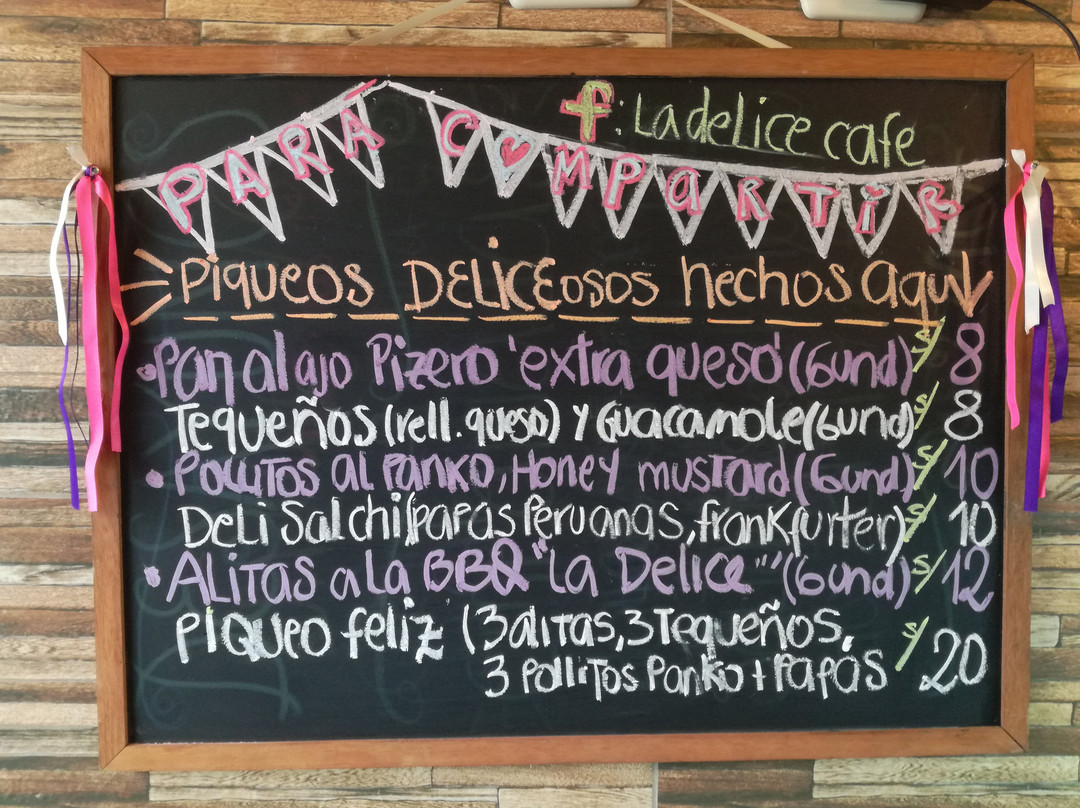 f: La delice cafe
PARÁ COMPARTIR
PIQUEOS DELICEOSOS hechos aquí
• Pan al ajo Pizero 'extra queso' (6und) S/ 8
Tequeños (rell. queso) y Guacamole (6und) S/ 8
• Pollitos al Panko, Honey mustard (6und) S/ 10
Deli Salchi (papas Peruanas, frankfurter) S/ 10
• ALITAS a La BBQ "La Delice" (6und) S/ 12
Piqueo feliz (3 alitas, 3 Tequeños, S/ 20
3 Pollitos Panko + Papas